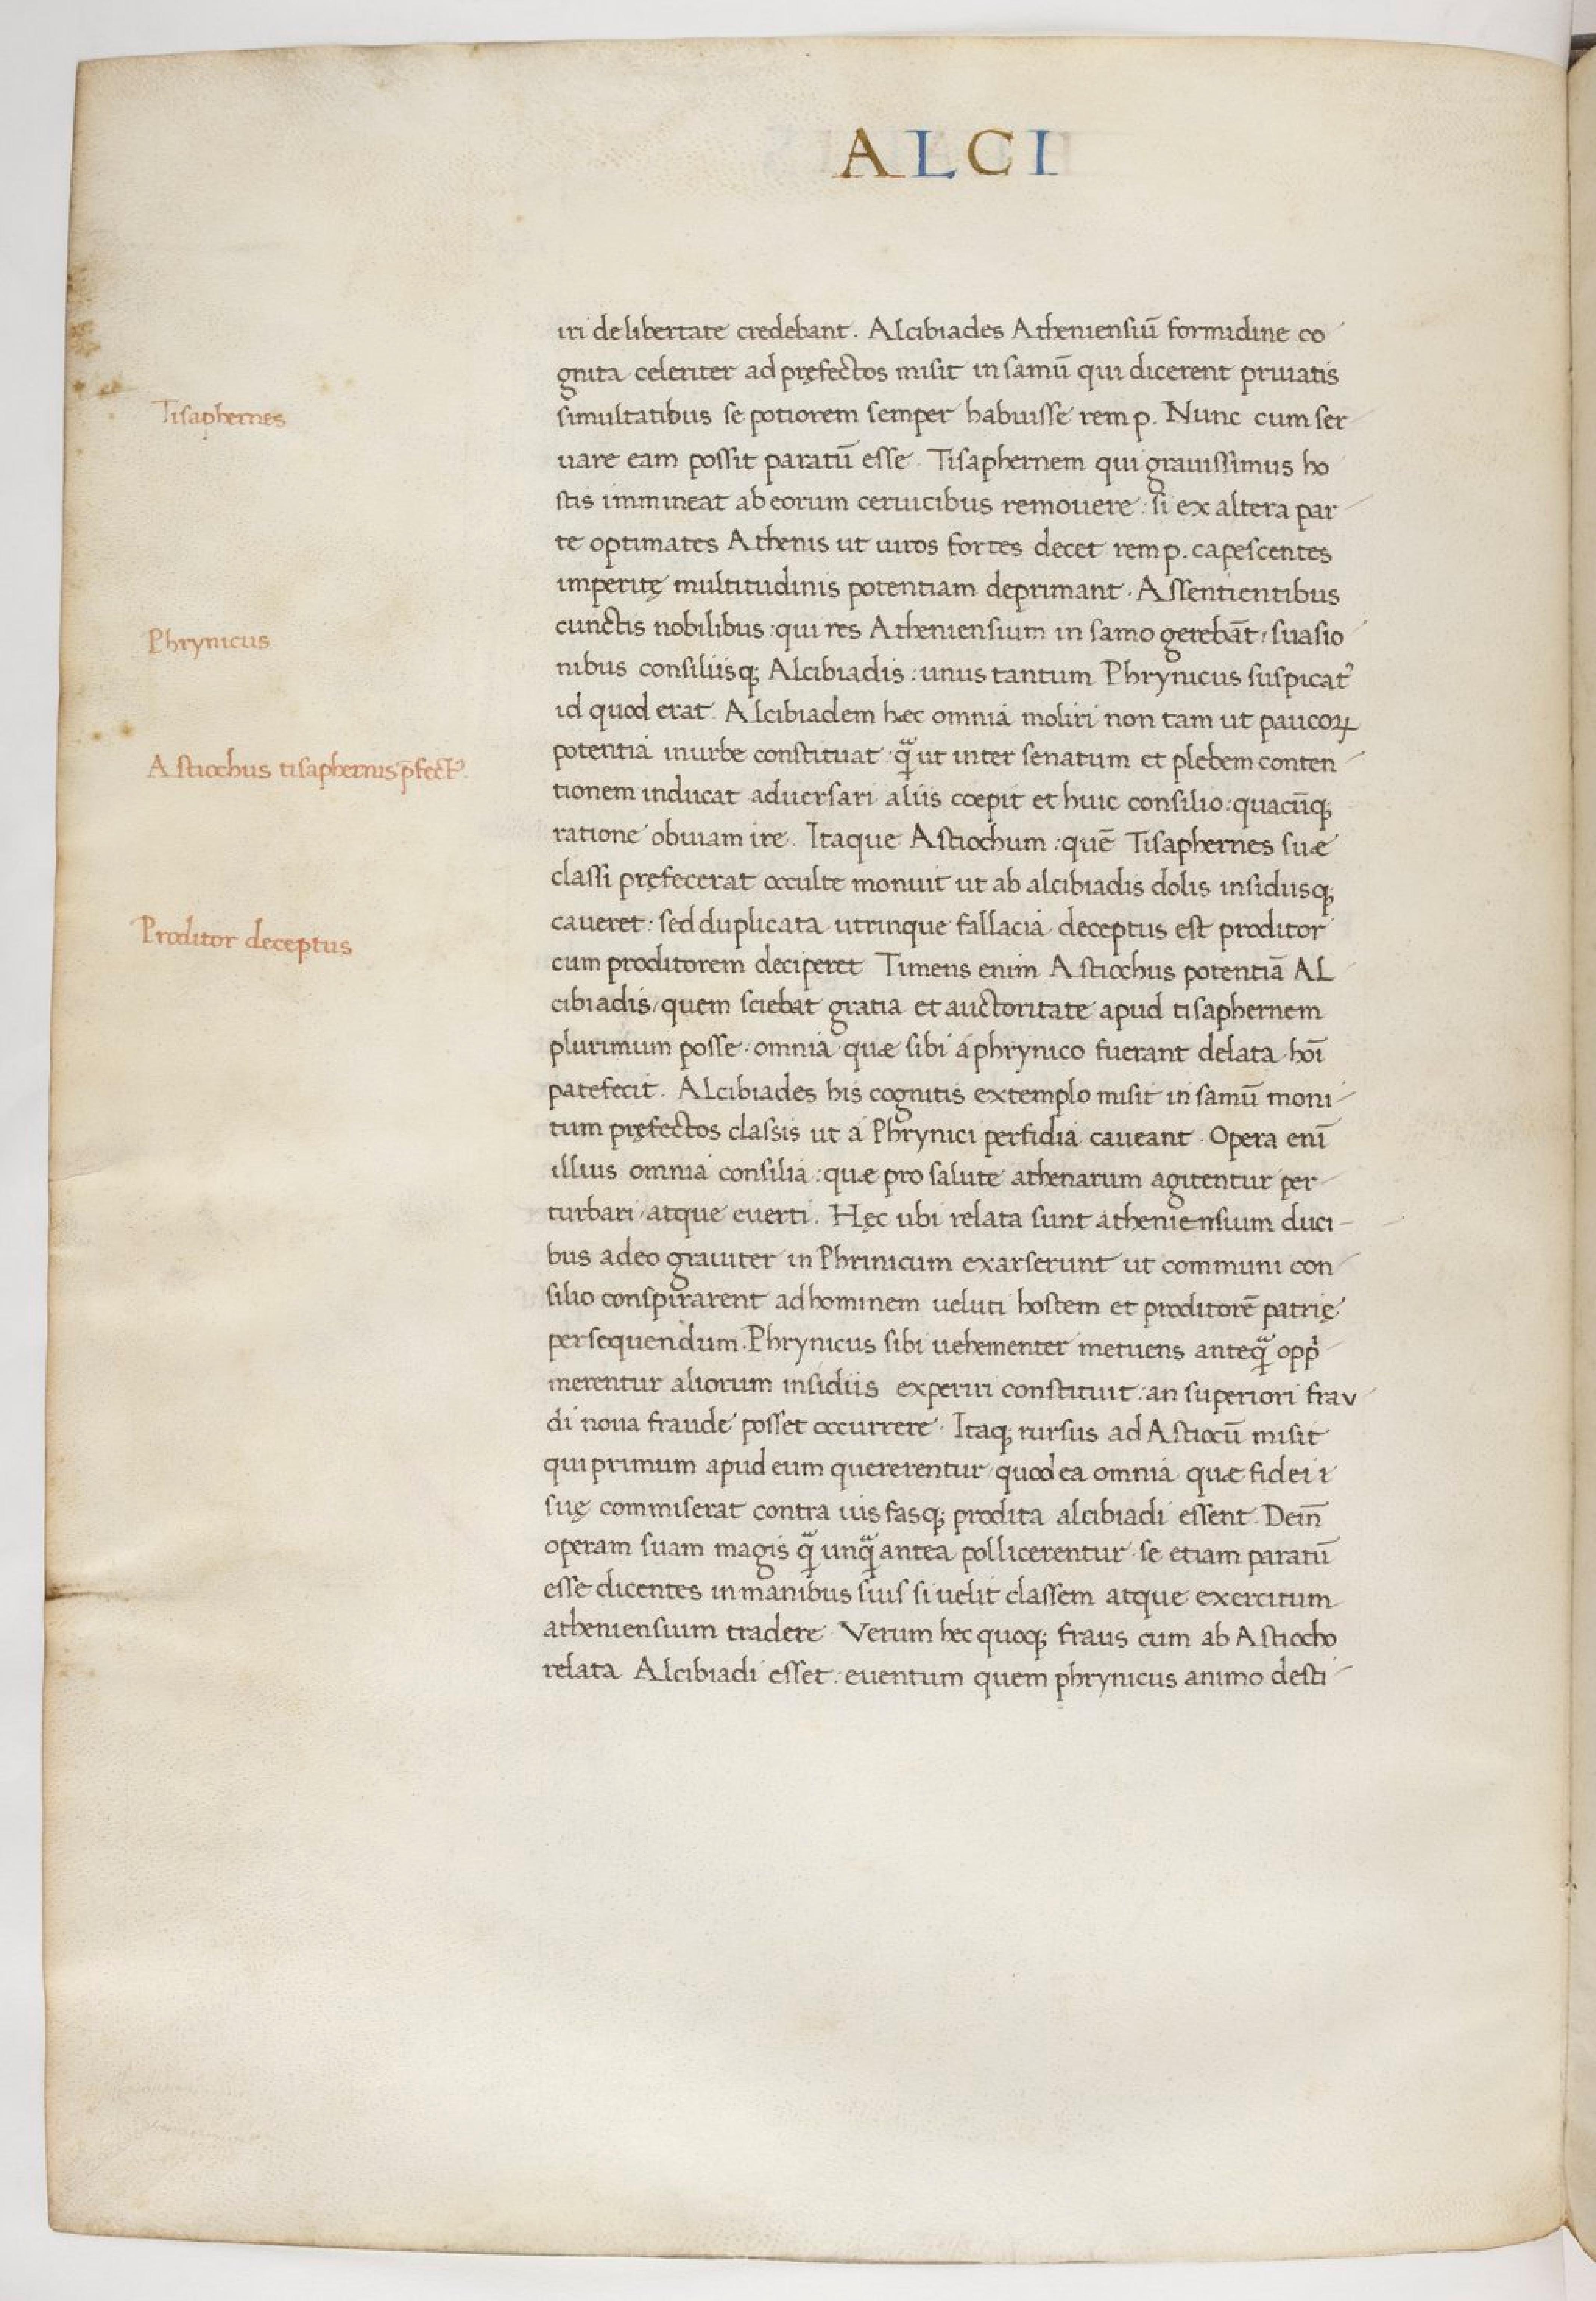 ALCI
iri de libertate credebant. Alcibiades Atheniensiū formidine co
gnita celeriter ad pręfectos misit in samū qui dicerent priuatis
Tisaphernes
simultatibus se potiorem semper habuisse rem p. Nunc cum ser
uare eam possit paratū esse. Tisaphernem qui grauissimus ho
stis immineat ab eorum ceruicibus remouere: si ex altera par
te optimates Athenis ut uiros fortes decet rem p. capescentes
imperitę multitudinis potentiam deprimant. Assentientibus
cunctis nobilibus: qui res Atheniensium in samo gerebāt: suasio
Phrynicus
nibus consiliisq; Alcibiadis: unus tantum Phrynicus suspicat᾿
id quod erat. Alcibiadem hæc omnia moliri non tam ut paucoꝝ
potentia in urbe constituat. qᷓ ut inter senatum et plebem conten
Astiochus tisaphernis p̄fect᾿.
tionem inducat aduersari aliis cœpit et huic consilio: quacūq;
ratione obuiam ire. Itaque Astiochum: quē Tisaphernes suæ
classi pręfecerat occulte monuit ut ab alcibiadis dolis insidiisq;
caueret: sed duplicata utrinque fallacia deceptus est proditor
Proditor deceptus
cum proditorem deciperet Timens enim Astiochus potentiā AL
cibiadis/quem sciebat gratia et auctoritate apud tisaphernem
plurimum posse: omnia quæ sibi a phrynico fuerant delata hoī
patefecit. Alcibiades his cognitis extemplo misit in samū moni
tum pręfectos classis ut a Phrynici perfidia caueant. Opera enī
illius omnia consilia: quæ pro salute athenarum agitentur per
turbari atque euerti. Hęc ubi relata sunt atheniensium duci
bus adeo grauiter in Phrinicum exarserunt ut communi con
silio conspirarent ad hominem ueluti hostem et proditorē patrię
persequendum. Phrynicus sibi uehementer metuens anteqᷓ opp̍
merentur aliorum insidiis experiri constituit: an superiori frav
di noua fraude posset occurrere. Itaq; rursus ad Astiocū misit
qui primum apud eum quererentur/quod ea omnia quæ fidei i
suę commiserat contra ius fasq; prodita alcibiadi essent. Dein̄
operam suam magis qᷓ unqᷓ antea pollicerentur. se etiam paratū
esse dicentes in manibus suis si uelit classem atque exercitum
atheniensium tradere. Verum hec quoq; fraus cum ab Astiocho
relata Alcibiadi esset: euentum quem phrynicus animo desti